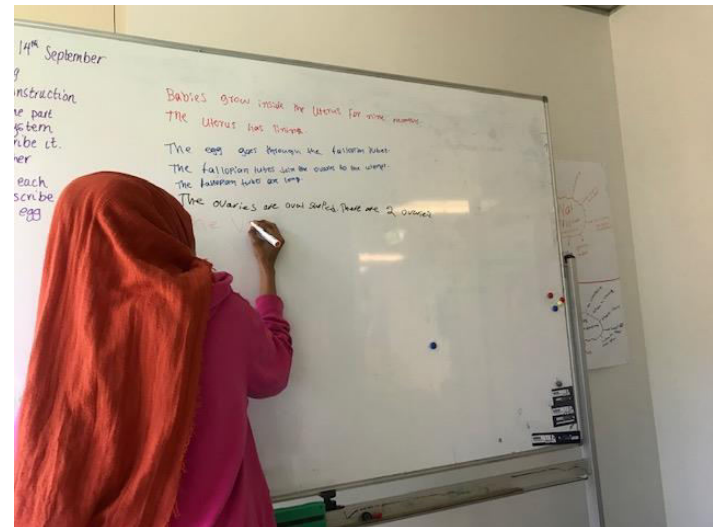 14th September
nstruction
e part
stem
ibe it.
her
each
scribe
egg
Babies grow inside the Uterus for nine months.
The Uterus has lining.
The egg goes through the fallopian tubes.
The fallopian tubes join the ovaries to the uterus.
The fallopian tubes are long.
The ovaries are oval shaped. There are 2 ovaries
The